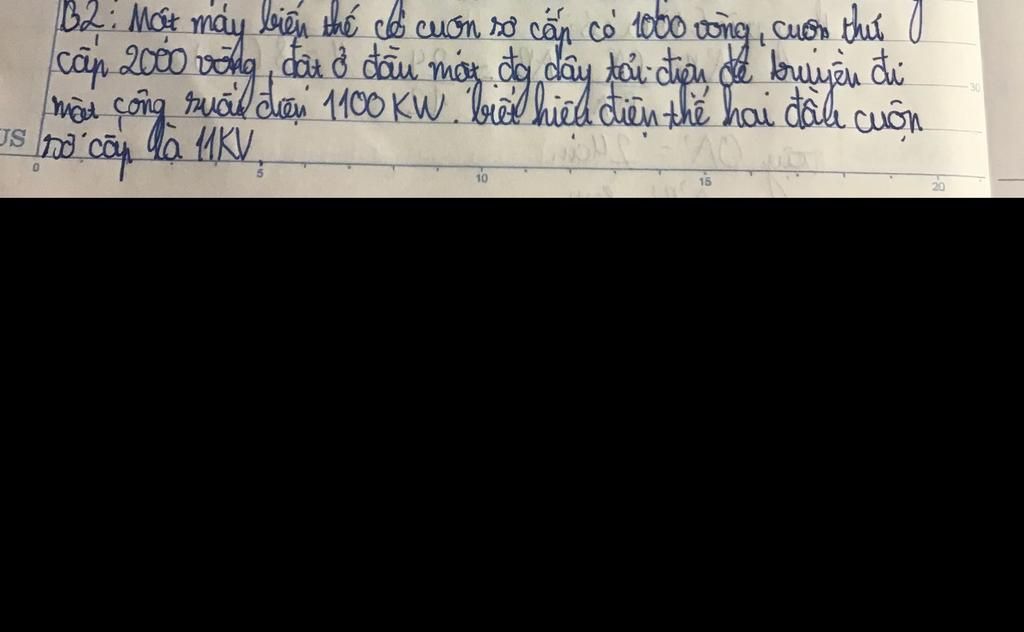 B2: Một máy biến thế có cuộn sơ cấp có 1000 vòng, cuộn thứ
cấp 2000 vòng, đặt ở đầu một đg dây tải điện để truyền đi
một công suất điện 1100 KW. biết hiệu điện thế hai đầu cuộn
JS sơ cấp là 11KV.
0 5 10 15 20
30